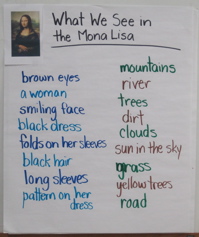 What We See in
the Mona Lisa
brown eyes
a woman
smiling face
black dress
folds on her sleeves
black hair
long sleeves
pattern on her
dress
mountains
river
trees
dirt
clouds
sun in the sky
grass
yellow trees
road